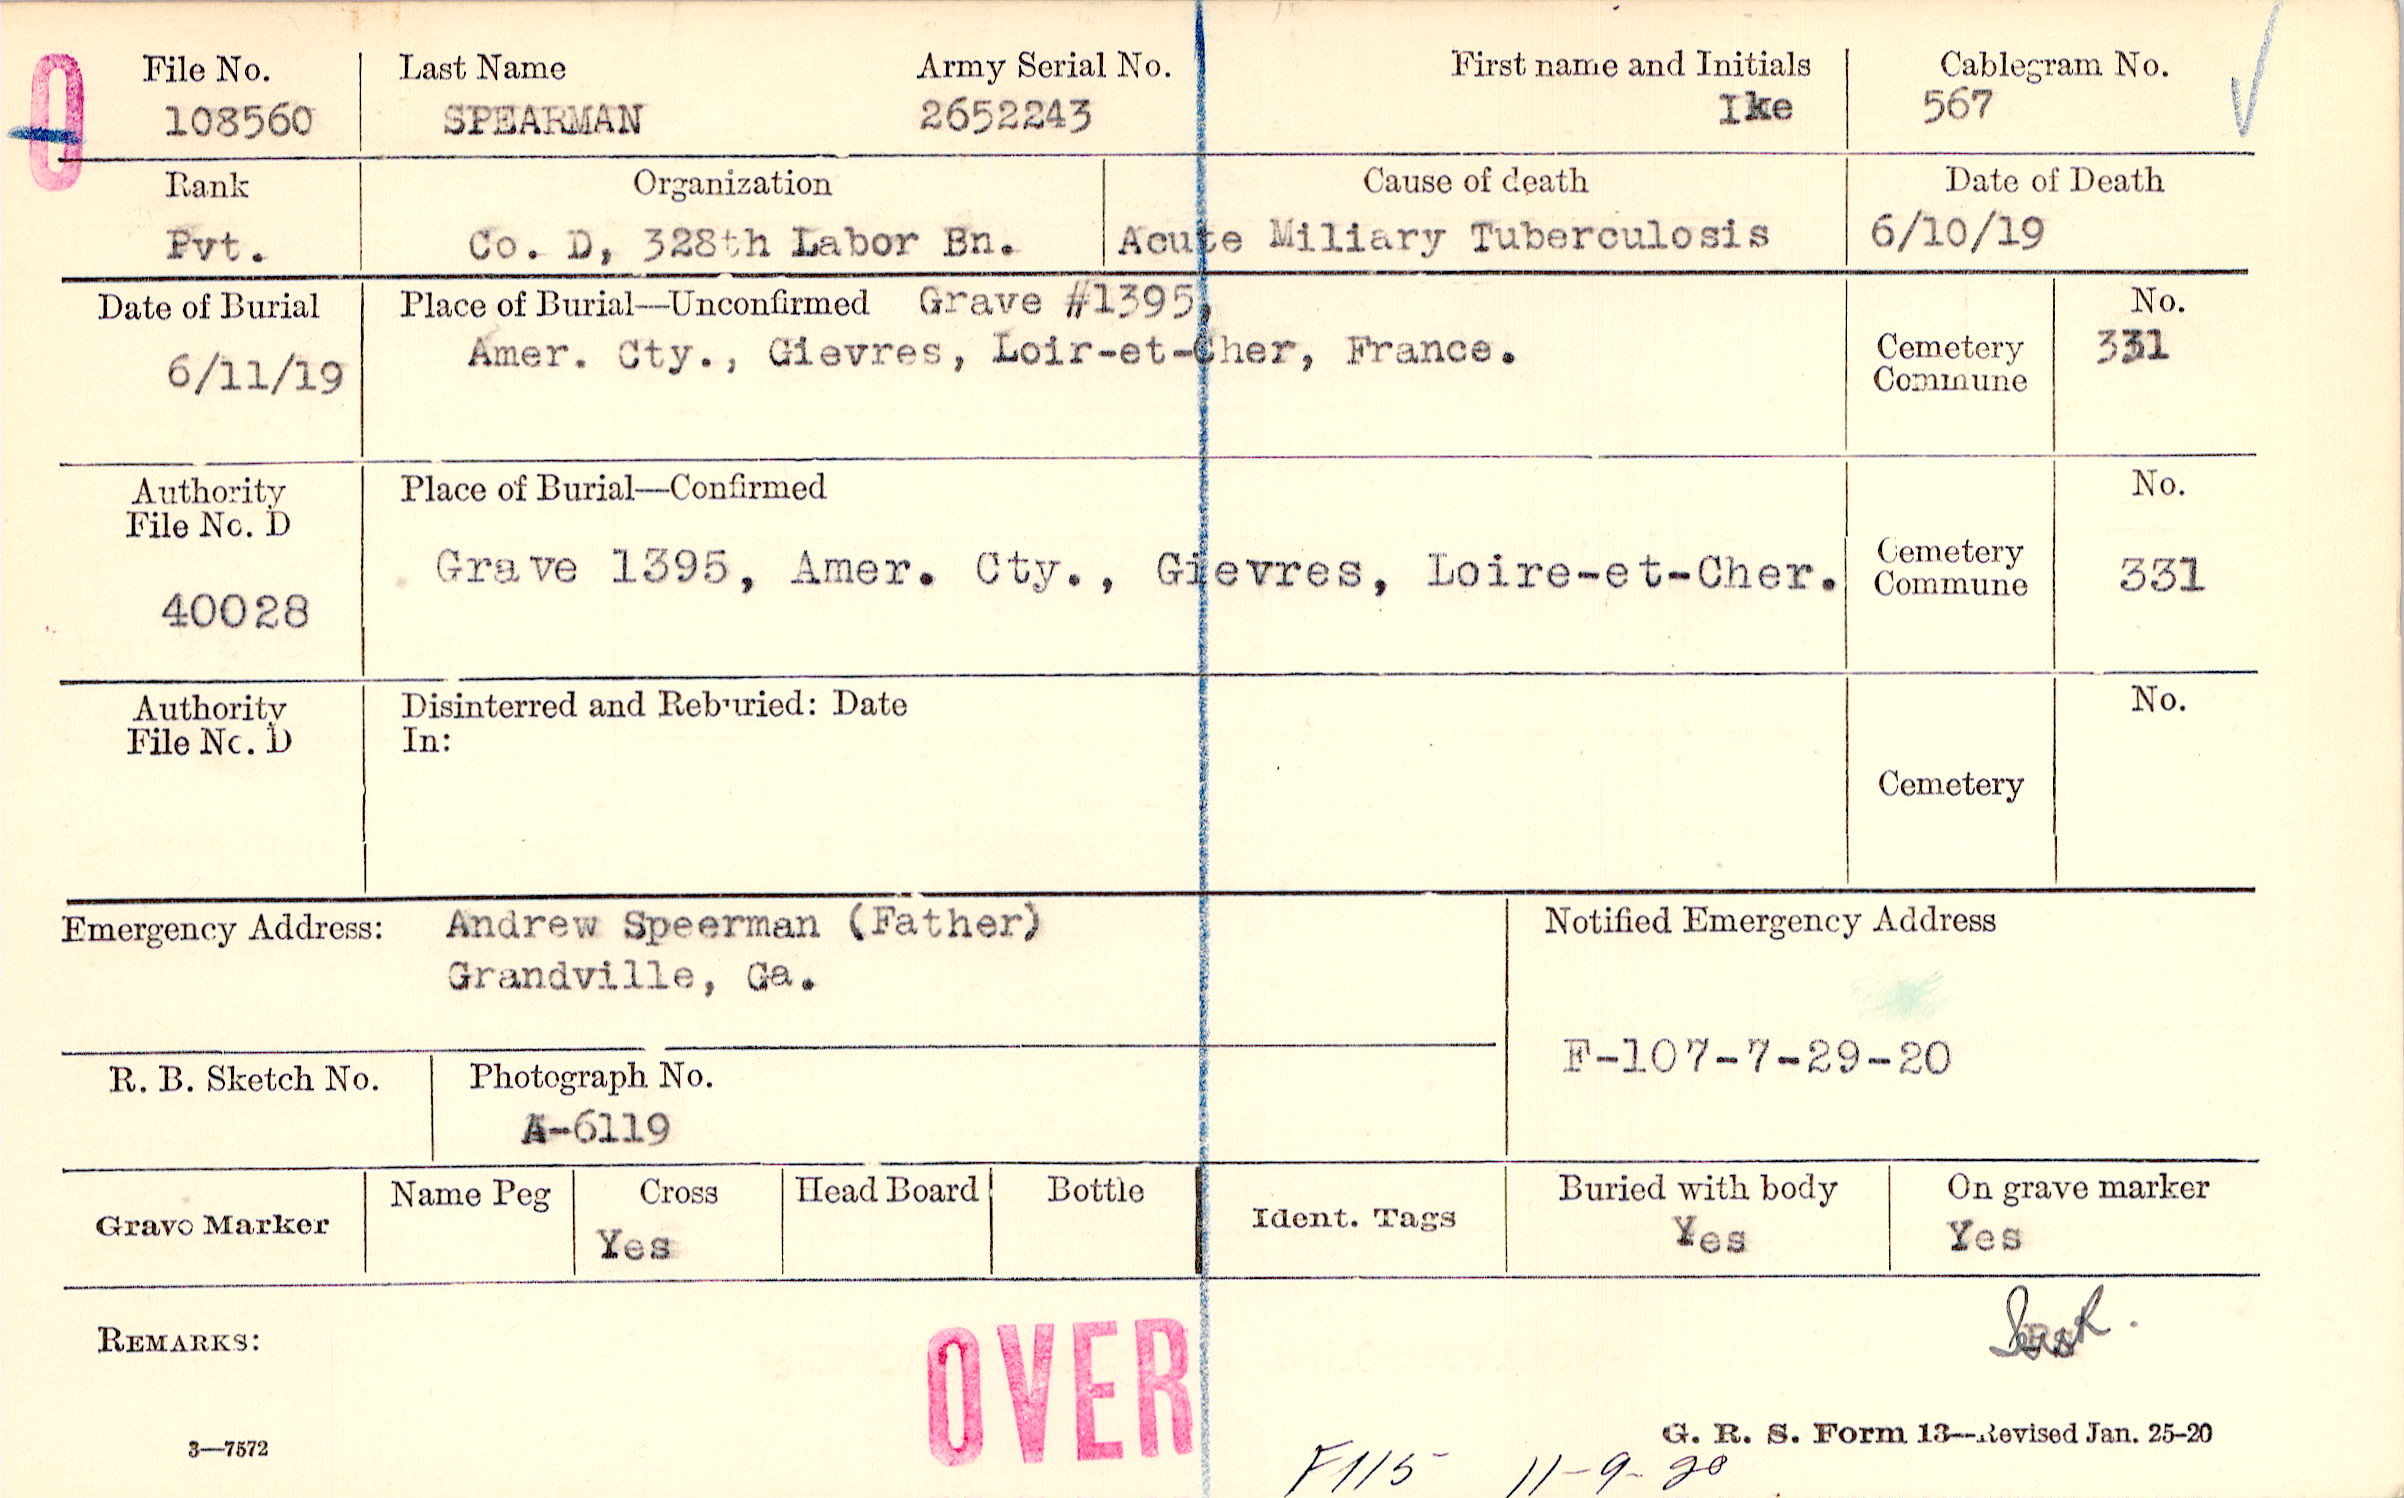 O
File No. Last Name Army Serial No. First name and Initials Cablegram No.
108560 SPEARMAN 2652243 Ike 567
Rank Organization Cause of death Date of Death
Pvt. Co. D, 328th Labor Bn. Acute Miliary Tuberculosis 6/10/19
Date of Burial Place of Burial—Unconfirmed Grave #1395, No.
6/11/19 Amer. Cty., Gievres, Loir-et-Cher, France. Cemetery 331
Commune
Authority Place of Burial—Confirmed No.
File No. D
40028 Grave 1395, Amer. Cty., Gievres, Loire-et-Cher. Cemetery 331
Commune
Authority Disinterred and Reburied: Date No.
File No. D In:
Cemetery
Emergency Address: Andrew Speerman (Father) Notified Emergency Address
Grandville, Ga.
F-107-7-29-20
R. B. Sketch No. Photograph No.
A-6119
Grave Marker Name Peg Cross Head Board Bottle Ident. Tags Buried with body On grave marker
Yes Yes Yes
REMARKS:
OVER
3—7572 G. R. S. Form 13—Revised Jan. 25-20
F115 11-9-20